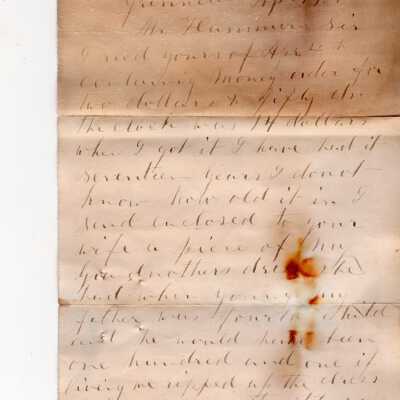 Mr Hummer Sir
I recd yours of
containing money order for
two dollars & fifty cts
the clock was 14 dollars
when I got it I have had it
seventeen years I do not
know how old it is I
send enclosed to your
wife a piece of my
Grandmothers dress she
had when young my
father was fourth child
and he would have been
one hundred and one if
living we ripped up the dress